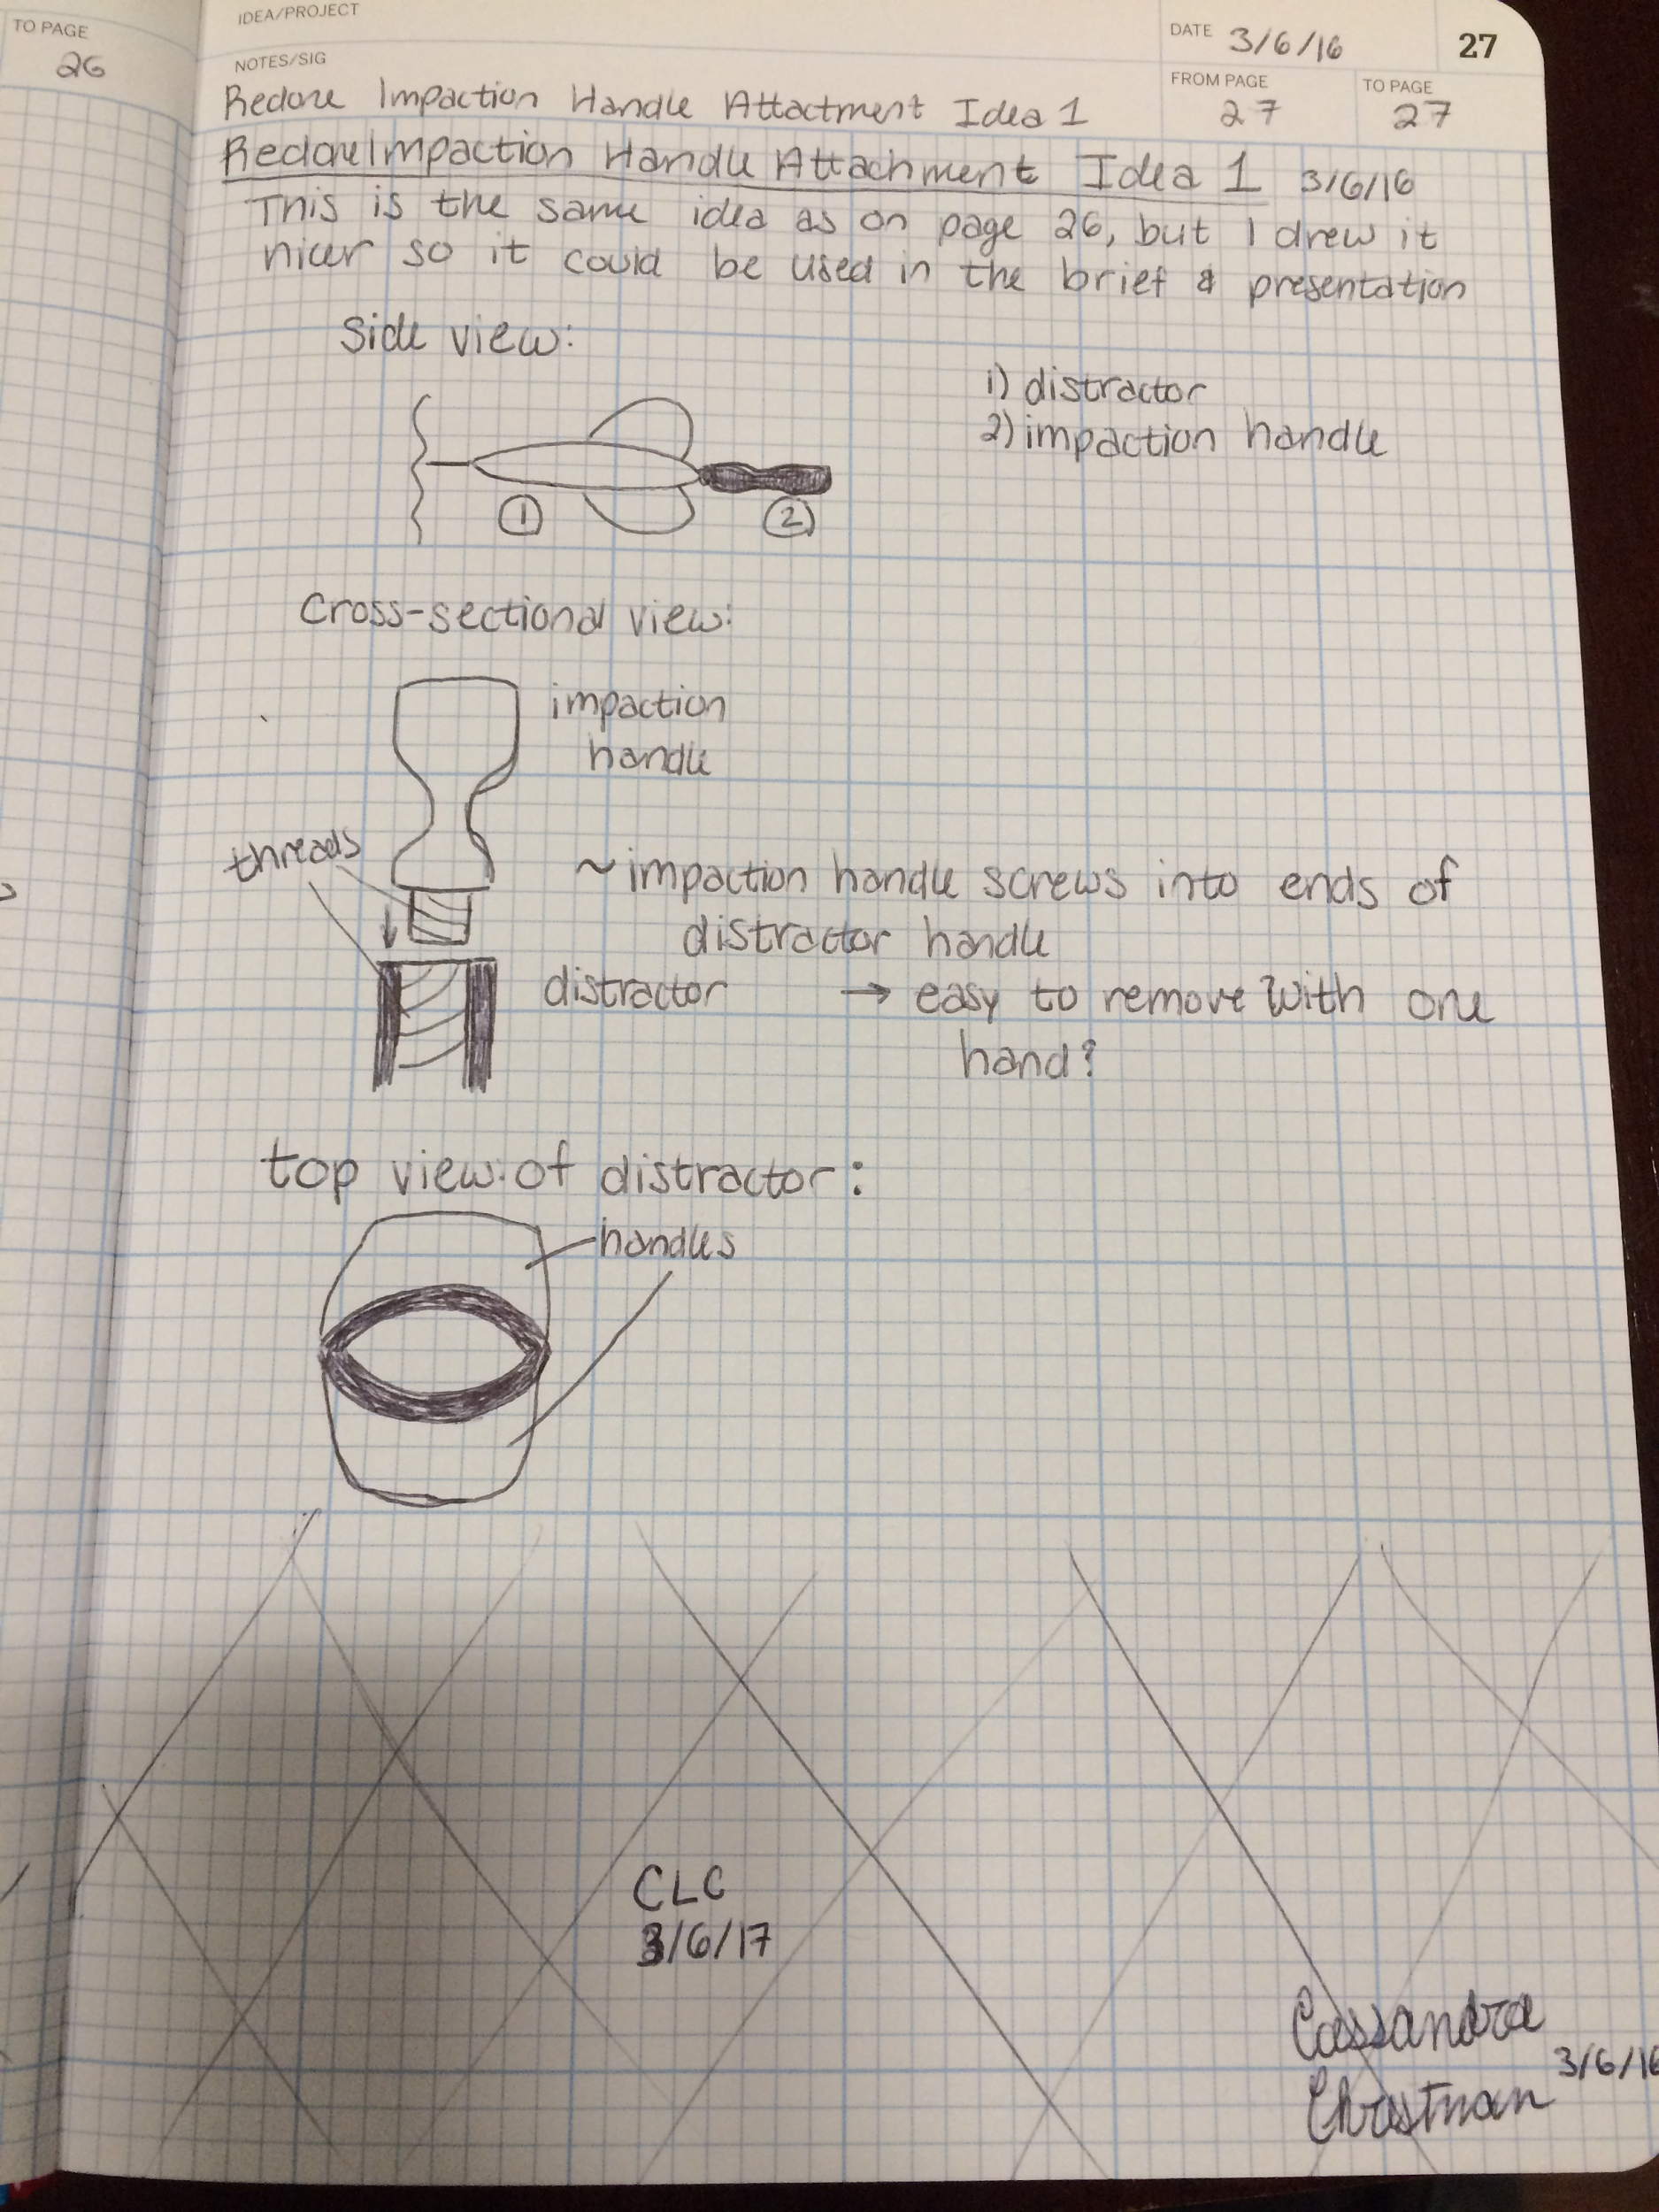 TO PAGE
26
IDEA/PROJECT
DATE 3/6/16
27
NOTES/SIG
FROM PAGE
27
TO PAGE
27
Redone Impaction Handle Attactment Idea 1
Redone Impaction Handle Attachment Idea 1 3/6/16
This is the same idea as on page 26, but I drew it
nicer so it could be used in the brief & presentation
Side view:
1) distractor
2) impaction handle
1
2
Cross-sectional view:
impaction
handle
threads
~ impaction handle screws into ends of
distractor handle
distractor
→ easy to remove with one
hand?
top view of distractor:
handles
CLC
3/6/17
Cassandra
Christman 3/6/16